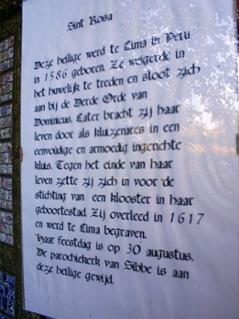 Sint Rosa
Deze heilige werd te Lima in Peru
in 1586 geboren. Ze weigerde in
het huwelijk te treden en sloot zich
aan bij de Derde Orde van
Dominicus. Later bracht zij haar
leven door als kluizenares in een
eenvoudige en armoedig ingerichte
kluis. Tegen het einde van haar
leven zette zij zich in voor de
stichting van een klooster in haar
geboortestad. Zij overleed in 1617
en werd te Lima begraven.
Haar feestdag is op 30 augustus.
De parochiekerk van Sibbe is aan
deze heilige gewijd.